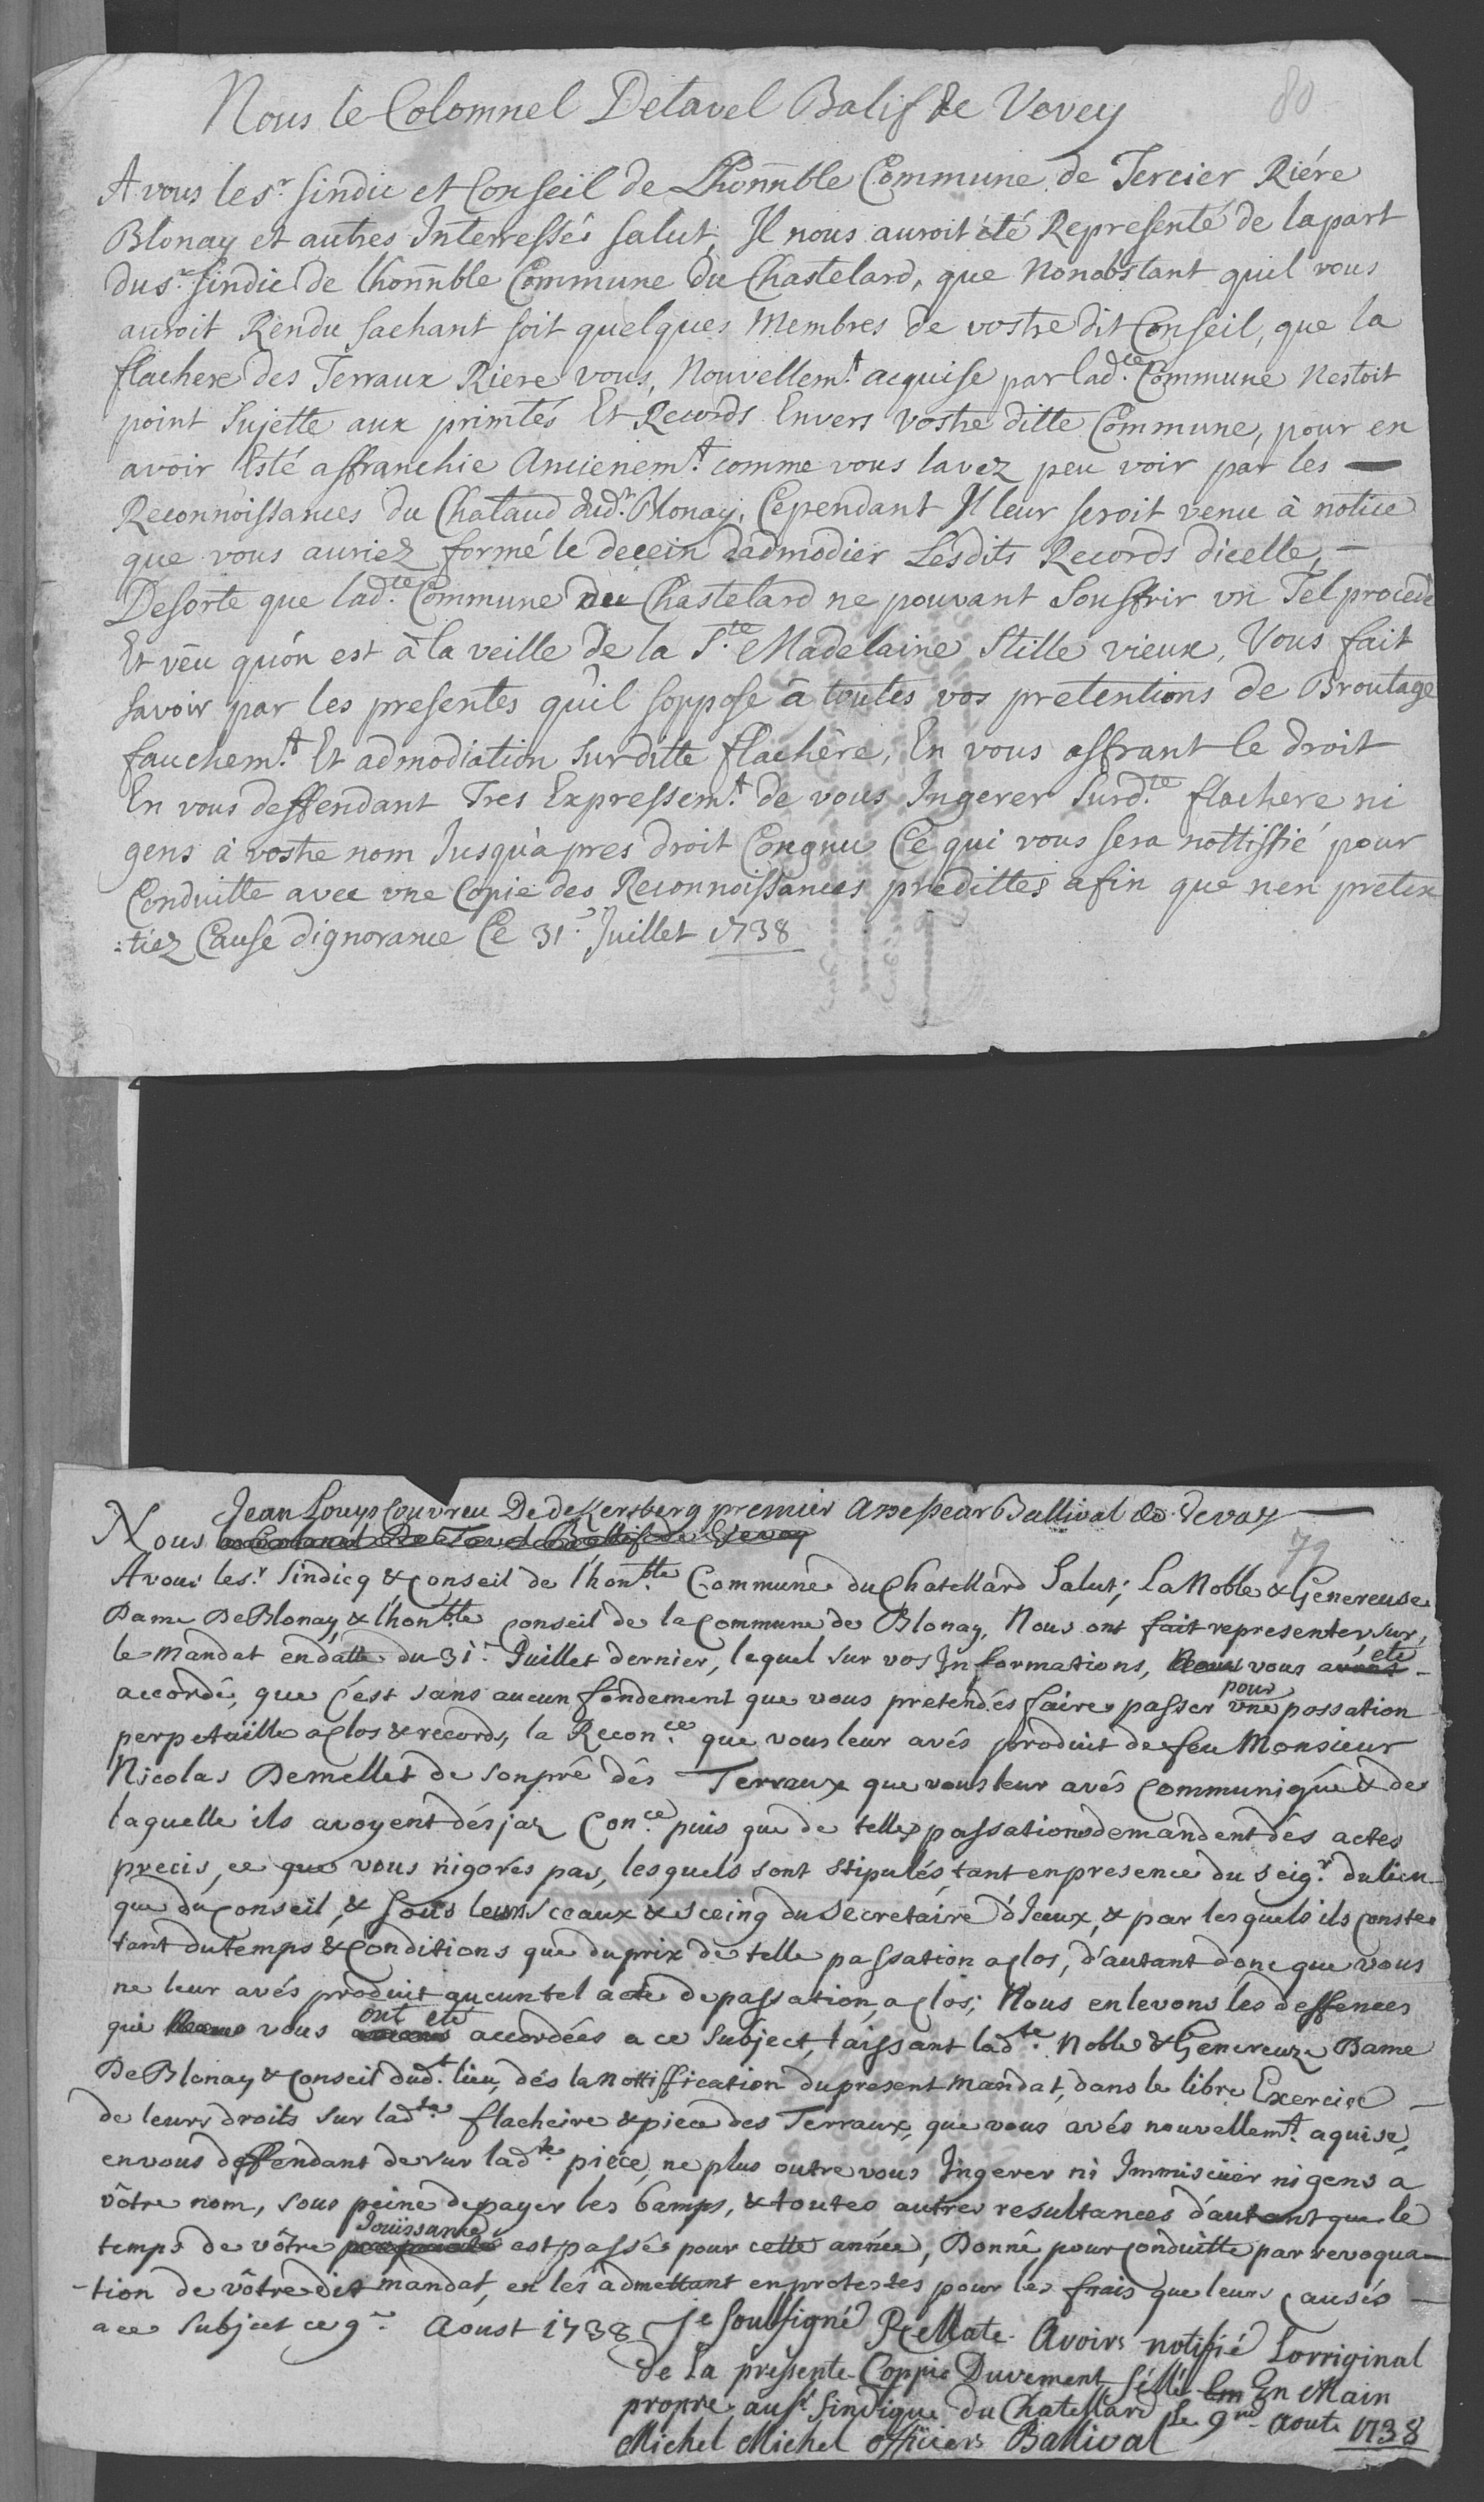 80
Nous le Colomnel Detavel Balif de Vevey
A vous le Sr. sindic et Conseil de Lhonnble Commune de Tercier Riére
Blonay et autres Interressés salut, Il nous auroit été Representé de la part
du sr. sindic de lhonnble Commune du Chastelard, que Nonobstant quil vous
auroit Rendu sachant soit quelques Membres de vostre dit Conseil, que la
flachere des Terraux Riere vous, Nouvellemt. acquise par ladte. Commune Nestoit
point Sujette aux primtés Et Records Envers Vostre ditte Commune, pour en
avoir Esté affranchie Ancienemt. comme vous lavez peu voir par les —
Reconnoissances du Chataud dudt. Blonay, Cependant Il leur seroit venu à notice
que vous auriez formé le decein dadmodier Lesdits Records dicelle, —
Desorte que ladte. Commune du Chastelard ne pouvant Souffrir vn Tel procedé
Et vêu quón est à la veille de la Ste. Madelaine Stille vieux, Vous fait
savoir par les presentes quil soppose à toutes vos pretentions de Broutage
fauchemt. Et admodiation surditte flachêre, En vous offrant le droit
En vous deffendant Tres Expressemt. de vous Ingerer Surdte. flachere ni
gens à vostre nom Jusquàpres droit Congnu Ce qui vous sera nottiffié pour
Conduitte avec vne Copie des Reconnoissances predittes afin que nen pretex
:tiez Cause dignorance Ce 31e. Juillet 1738
79
Jean Louys Couvreu De dekersberg premier Assesseur Ballival de Vevay —
Nous le Colonnel De Tavel Ballif de Vevey
A vous le sr. Sindicq & Conseil de l'honble. Commune du Chatellard Salut; La Noble & Genereuse
Dame De Blonay & lhonble. conseil de la Commune de Blonay, Nous ont fait representer sur,
le Mandat en datte du 31e. Juillet dernier, lequel sur vos Informations, Nous vous avons eté -
accordé, que c'est sans aucun fondement que vous pretendés faire passer pour vne passation
perpetuëlle a clos & records, la Reconce. que vous leur avés produit de feu Monsieur
Nicolas Demellet de son prê dés Terraux que vous leur avés Communiqué & de
laquelle ils avoyent desjaz Conce. puis que de telles passations demandent dés actes
precis, ce que vous nigorés pas, lesquels sont stipulés tant en presence du seigr. du lieu
que du conseil, & sous leurs sceaux & sceing du secretaire d'Iceux, & par lesquels ils conste
tant du temps & Conditions que du prix de telle passation a clos, d'autant donc que vous
ne leur avés produit aucun tel acte de passation a clos; Nous en levons les deffences
qui Nous vous avons ont eté accordées a ce Subject, laissant ladte. Noble & Genereuze Dame
De Blonay & Conseil dudt. lieu, dés la Nottiffication du present Mandat, dans le libre Exercice —
de leurs droits sur ladte. flacheire & piece des Terraux, que vous avés nouvellemt. aquise,
en vous deffendant de sur ladte. piéce, ne plus outre vous Ingerer ni Immiscuër ni gens a
vôtre nom, sous peine de payer les bamps, & toutes autres resultances d'autant que le
temps de vôtre Jouïssance est passé pour cette année, Donné pour conduitte par revoqua—
-tion de vôtre dit mandat, en les admettant en protestes pour les frais que leurs causés —
a ce Subject ce 9e. Aoust 1738 Je soubsigné Rellate Avoirs notifié Lorriginal
de La pressente Coppie Duvement séllé En En Main
propre au sr. Sindique du Chatellard Le 9me. Aoute 1738
Michel Michel officiers Ballival